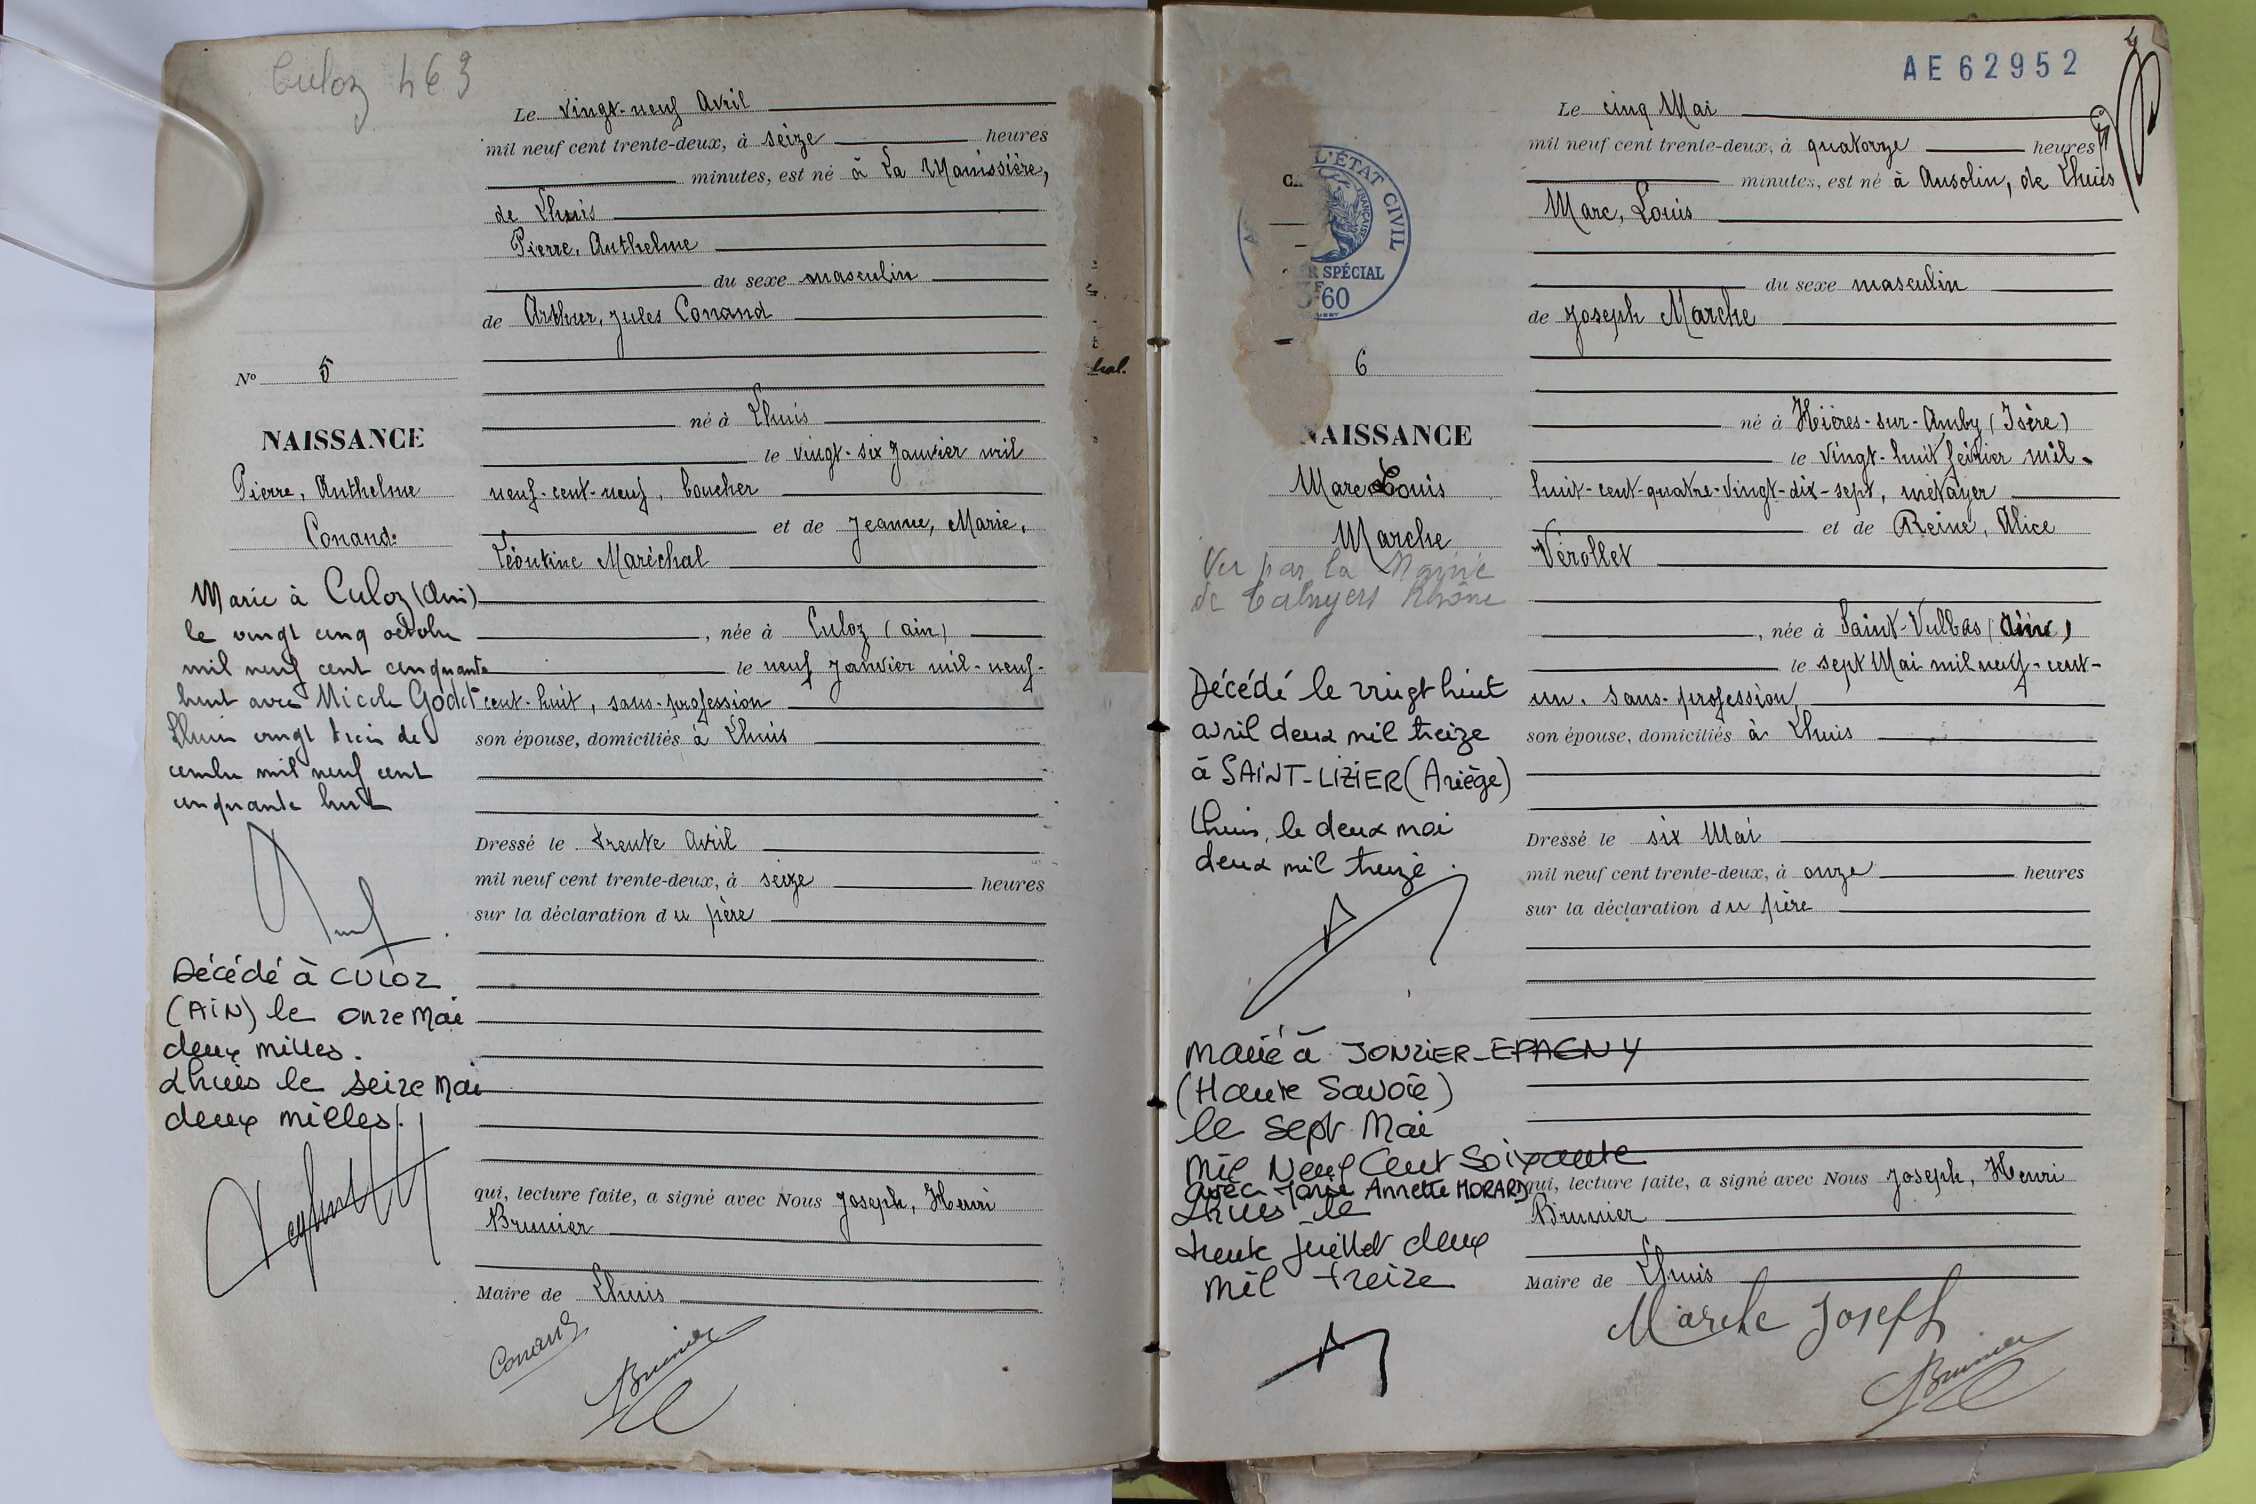 Culoz 463
Le vingt-neuf Avril
mil neuf cent trente-deux, à seize heures
minutes, est né à La Manissière,
de Lhuis
Pierre, Anthelme
du sexe masculin
de Arthur, Jules Conand
né à Lhuis
le vingt-six Janvier mil
neuf-cent-neuf, boucher
et de Jeanne, Marie,
Léontine Maréchal
, née à Culoz (ain)
le neuf Janvier mil-neuf-
cent-huit, sans-profession
son épouse, domiciliés à Lhuis
Dressé le trente Avril
mil neuf cent trente-deux, à seize heures
sur la déclaration du père
qui, lecture faite, a signé avec Nous Joseph, Henri
Brunier
Maire de Lhuis
Conand
Brunier
No 5
NAISSANCE
Pierre, Anthelme
Conand
Marié à Culoz (Ain)
le vingt cinq octobre
mil neuf cent cinquante
huit avec Nicole Godet
Lhuis vingt trois dé
cembre mil neuf cent
cinquante huit
Décédé à CULOZ
(AIN) le onze Mai
deux milles.
Lhuis le seize Mai
deux milles.
hal.
AE62952
L'ÉTAT CIVIL
FRANÇAISE
SPÉCIAL
3F60
Le cinq Mai
mil neuf cent trente-deux, à quatorze heures
minutes, est né à Ansolin, de Lhuis
Marc, Louis
du sexe masculin
de Joseph Marche
né à Hières-sur-Amby (Isère)
le vingt-huit février mil-
huit-cent-quatre-vingt-dix-sept, métayer
et de Reine, Alice
Vérollet
, née à Saint-Vulbas (Ain)
le sept Mai mil neuf-cent-
un. sans-profession,
son épouse, domiciliés à Lhuis
Dressé le six Mai
mil neuf cent trente-deux, à onze heures
sur la déclaration du père
qui, lecture faite, a signé avec Nous Joseph, Henri
Brunier
Maire de Lhuis
Marche Joseph
Brunier
6
NAISSANCE
Marc Louis
Marche
Vu par la Mairie
de Taluyers Rhône
Décédé le vingt huit
avril deux mil treize
à SAINT-LIZIER (Ariège)
Lhuis, le deux mai
deux mil treize.
Marié à JONZIER-EPAGNY
(Haute Savoie)
le sept Mai
Mil Neuf Cent Soixante
avec Marie Annette MORARD
Lhuis le
trente juillet deux
mil treize